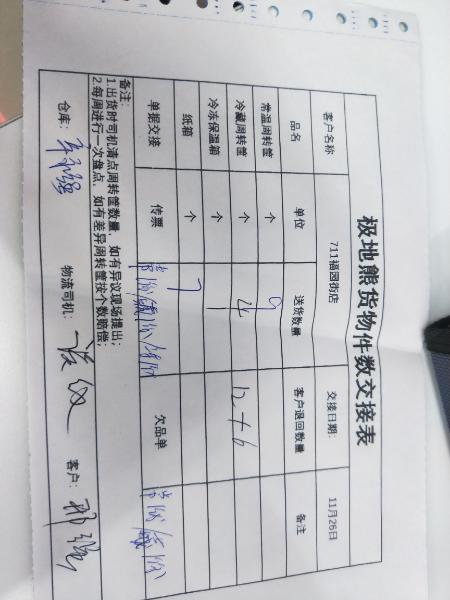 极地熊货物件数交接表
客户名称 711福园街店 交接日期: 11月26日
品名 单位 送货数量 客户退回数量 备注
常温周转筐 个 9
冷藏周转筐 个 4 12+6
冷冻保温箱 个 1
纸箱 个 7
单据交接 传票 欠品单
备注:
1.出货时司机清点周转筐数量,如有异议现场提出;
2.每周进行一次盘点,如有差异周转筐按个数赔偿;
仓库: 物流司机: 客户: